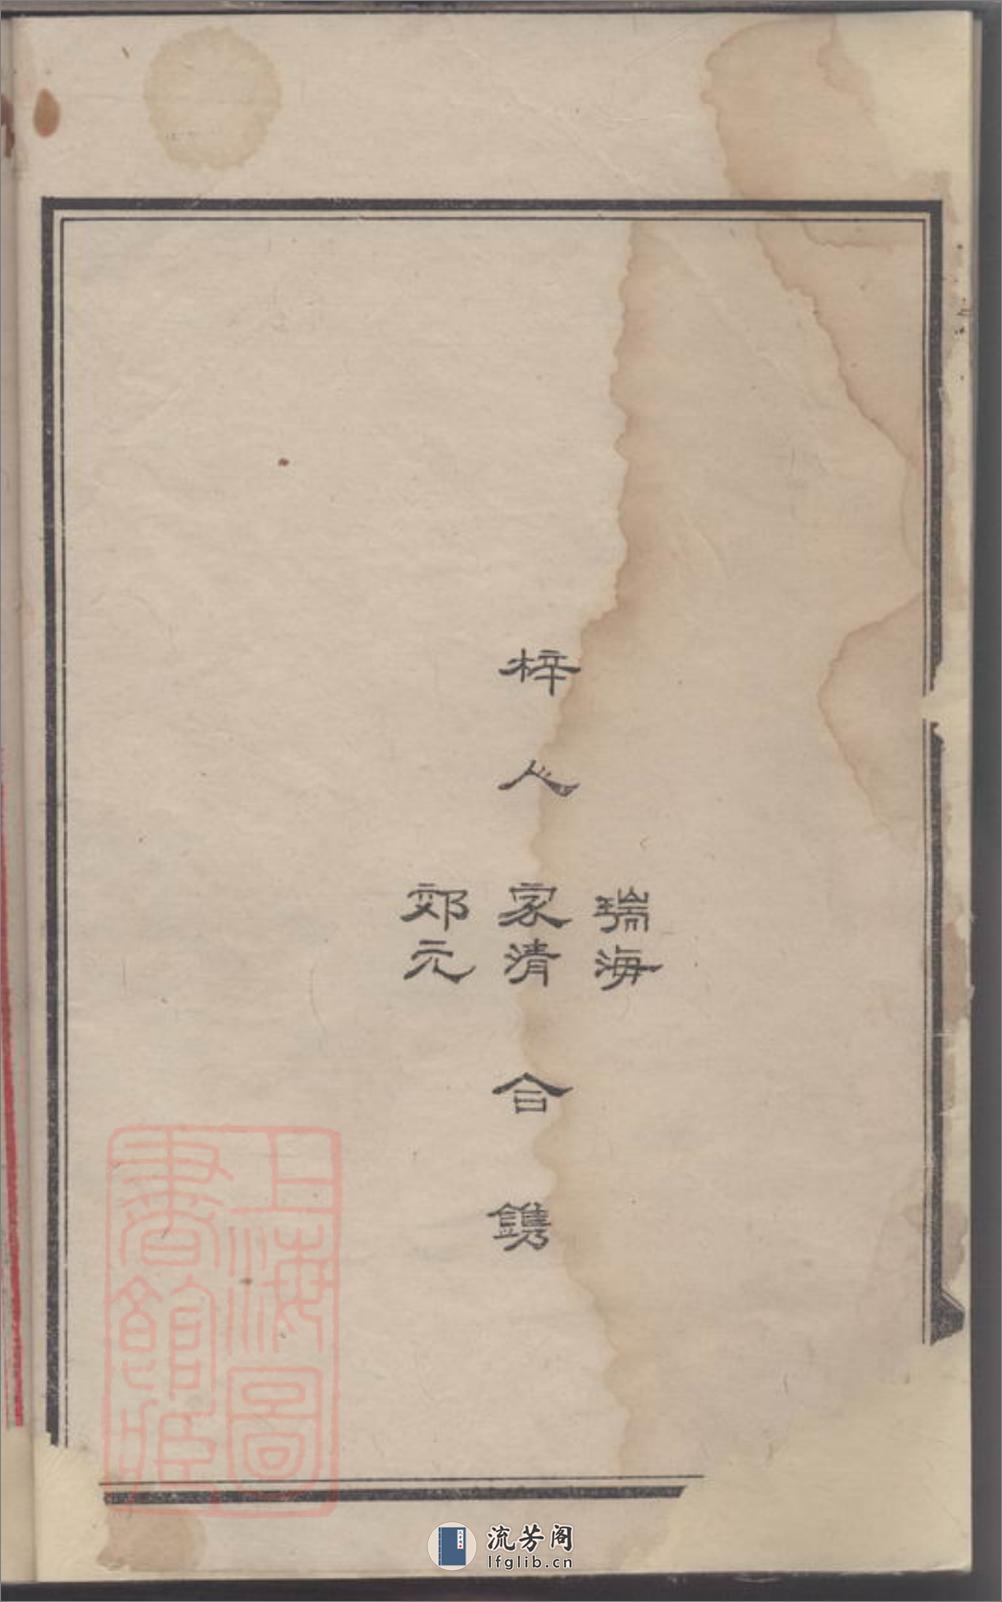 梓人
瑞海
家清
郊元
合鐫
上海圖
書館藏
流芳阁
lfglib.cn